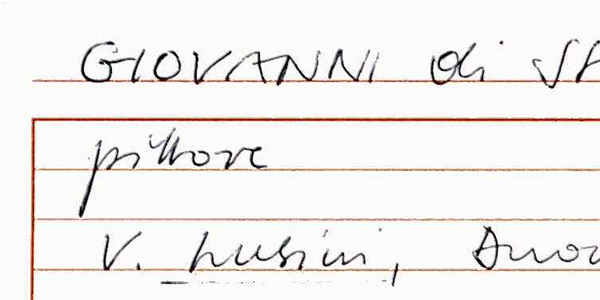 GIOVANNI di
pittore
V. Lusini,